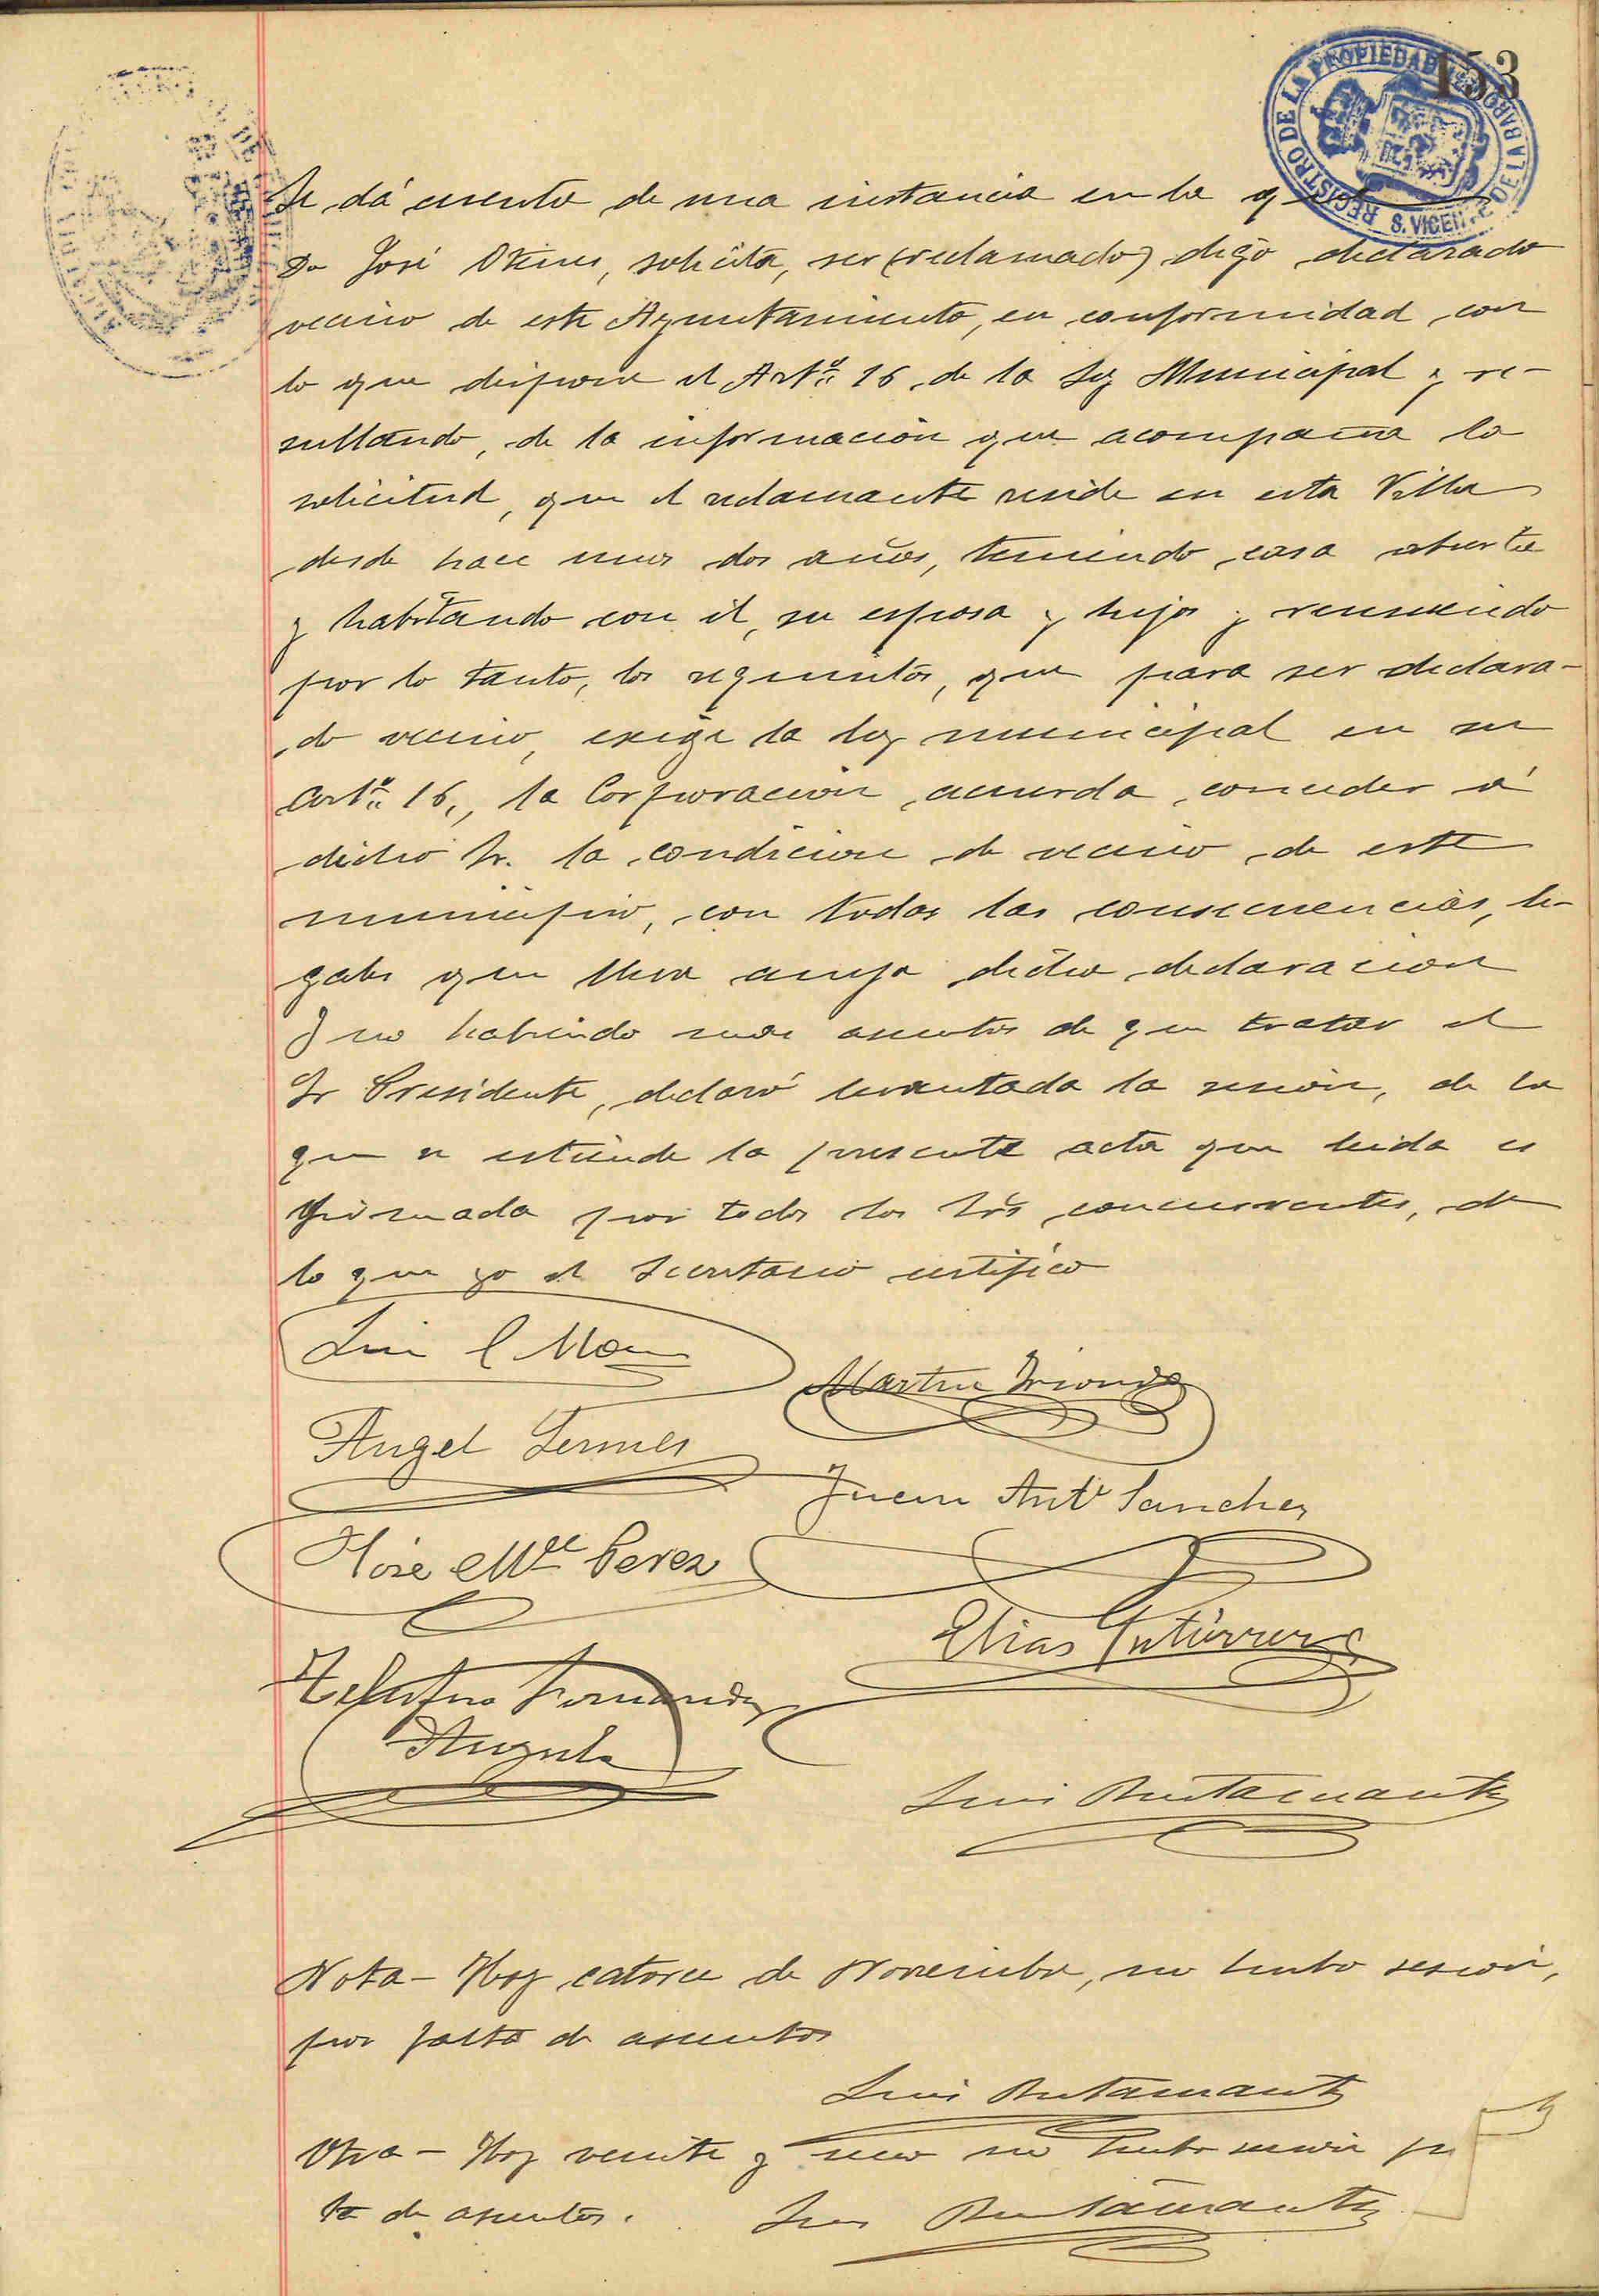 153
REGISTRO DE LA PROPIEDAD
S. VICENTE DE LA BARQUERA
Se dá cuenta de una instancia en la q
Dn José, solicita, ser (reclamado) digo declarado
vecino de este Ayuntamiento, en conformidad con
lo que dispone el Artº 16 de la Ley Municipal y re-
sultando, de la información que acompaña la
solicitud, que el reclamante reside en esta Villa
desde hace unos dos años, teniendo casa abierta
y habitando con él, su esposa y hijos y reuniendo
por lo tanto, los requisitos, que para ser declara-
do vecino, exige la ley municipal en su
artº 16, la Corporación acuerda conceder á
dicho Sr. la condicion de vecino de este
municipio, con todas las consecuencias, le-
gales que lleva anejo dicha declaracion
Y no habiendo mas asuntos de que tratar el
Sr Presidente, declaró levantada la sesión, de la
que se estiende la presente acta que leida es
firmada por todos los Srs concurrentes, de
lo que yo el Secretario certifico
Luis
Martin
Angel
Juan Antº Sanchez
José Mª Perez
Elias Gutierrez
Telesforo Fernandez
Angulo
Luis Bustamante
Nota - Hoy catorce de Noviembre, no hubo sesion,
por falta de asuntos
Luis Bustamante
Otra - Hoy veinte y uno no hubo sesion
ta de asuntos.
Luis Bustamante